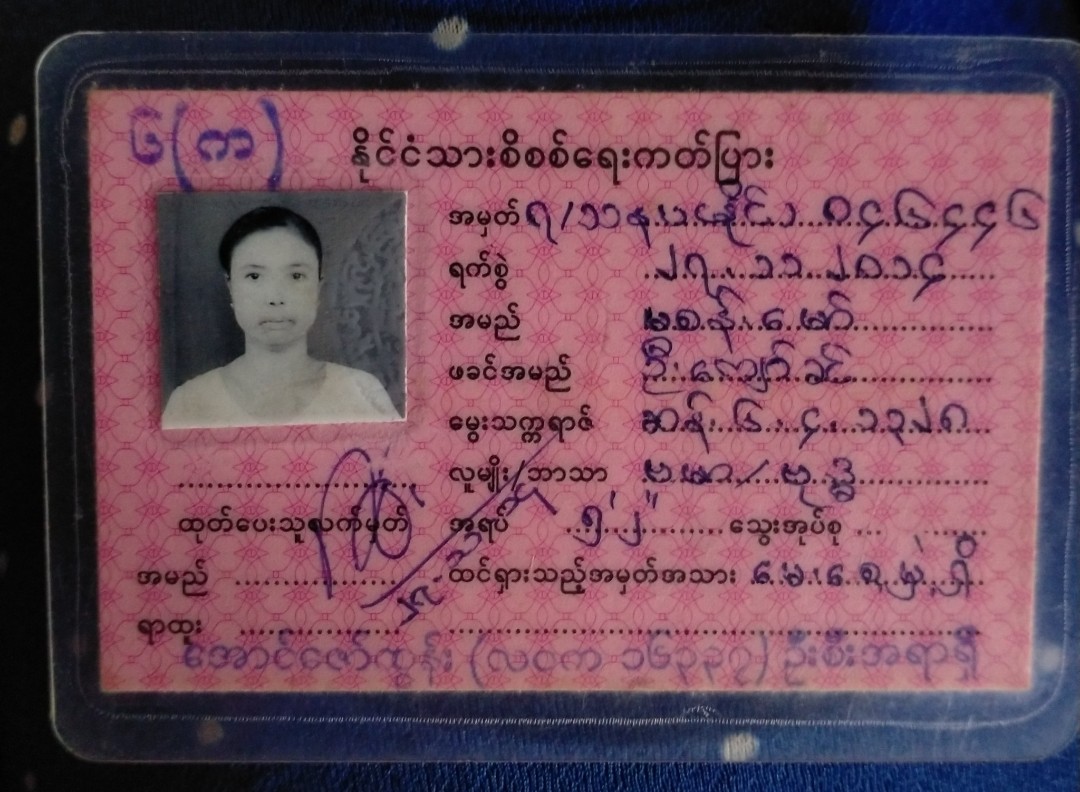 ၆(က)
နိုင်ငံသားစိစစ်ရေးကတ်ပြား
အမှတ် ၇/၁၁န..(နိုင်) ၀၄၆၄၄၆
ရက်စွဲ ၂၇.၁၁.၂၀၁၄
အမည် မစန်းမော်
ဖခင်အမည် ဦးကျော်ခင်
မွေးသက္ကရာဇ် ဆန်း ၆.၄.၁၃၂၈
လူမျိုး/ဘာသာ ဗမာ/ဗုဒ္ဓ
ထုတ်ပေးသူလက်မှတ်
အရပ် ၅'၂" သွေးအုပ်စု
အမည်
ထင်ရှားသည့်အမှတ်အသား မေးစေ့မှဲ့ရှိ
ရာထူး
အောင်ဇော်ထွန်း (လဝက ၁၆၃၃၇) ဦးစီးအရာရှိ